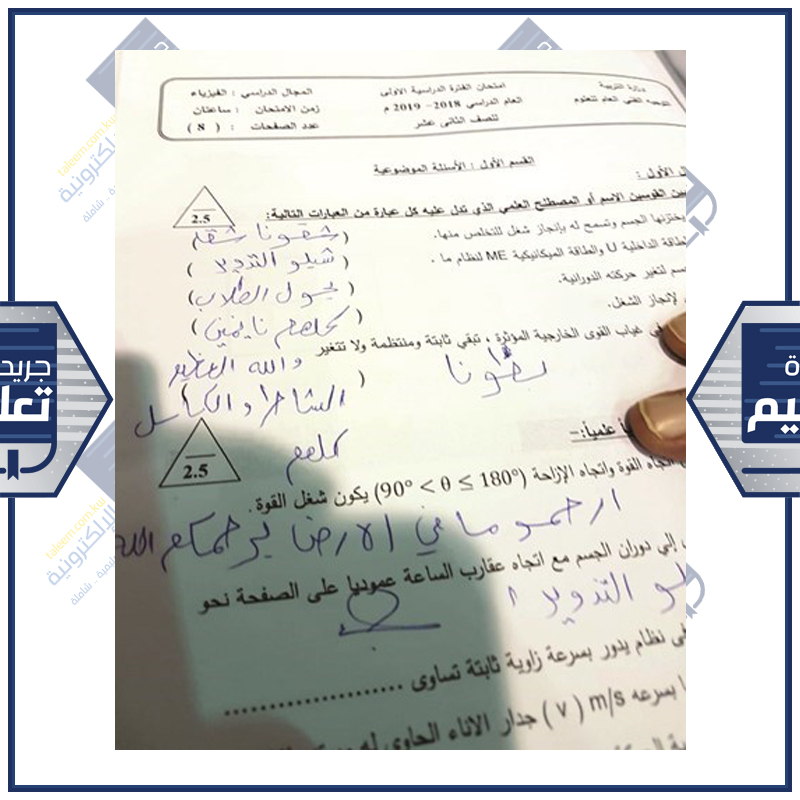 وزارة التربية
التوجيه الفني العام للعلوم
امتحان الفترة الدراسية الاولى
العام الدراسي 2018- 2019 م
للصف الثاني عشر
المجال الدراسي : الفيزياء
زمن الامتحان : ساعتان
عدد الصفحات : ( 8 )
القسم الأول : الأسئلة الموضوعية
الأول :
القوسين الاسم أو المصطلح العلمي الذي تدل عليه كل عبارة من العبارات التالية:
2.5
يختزنها الجسم وتسمح له بإنجاز شغل للتخلص منها.
( شقونا شقه
الطاقة الداخلية U والطاقة الميكانيكية ME لنظام ما .
( شيلو التدوير )
لتغير حركته الدورانية.
( يحول الطلاب )
لإنجاز الشغل.
( كلهم نايمين )
في غياب القوى الخارجية المؤثرة ، تبقي ثابتة ومنتظمة ولا تتغير
والله العظيم
الشاطر والكسل
كلهم
2.5
علمياً:–
اتجاه القوة واتجاه الإزاحة (90° < θ ≤ 180°) يكون شغل القوة.
ارحمو ما في الارض يرحمكم الله
إلي دوران الجسم مع اتجاه عقارب الساعة عموديا على الصفحة نحو
التدوير
نظام يدور بسرعة زاوية ثابتة تساوى ....................
بسرعه m/s ( v ) جدار الاناء الحاوي له
جريدة
تعليم
taleem.com.kw
الإلكترونية